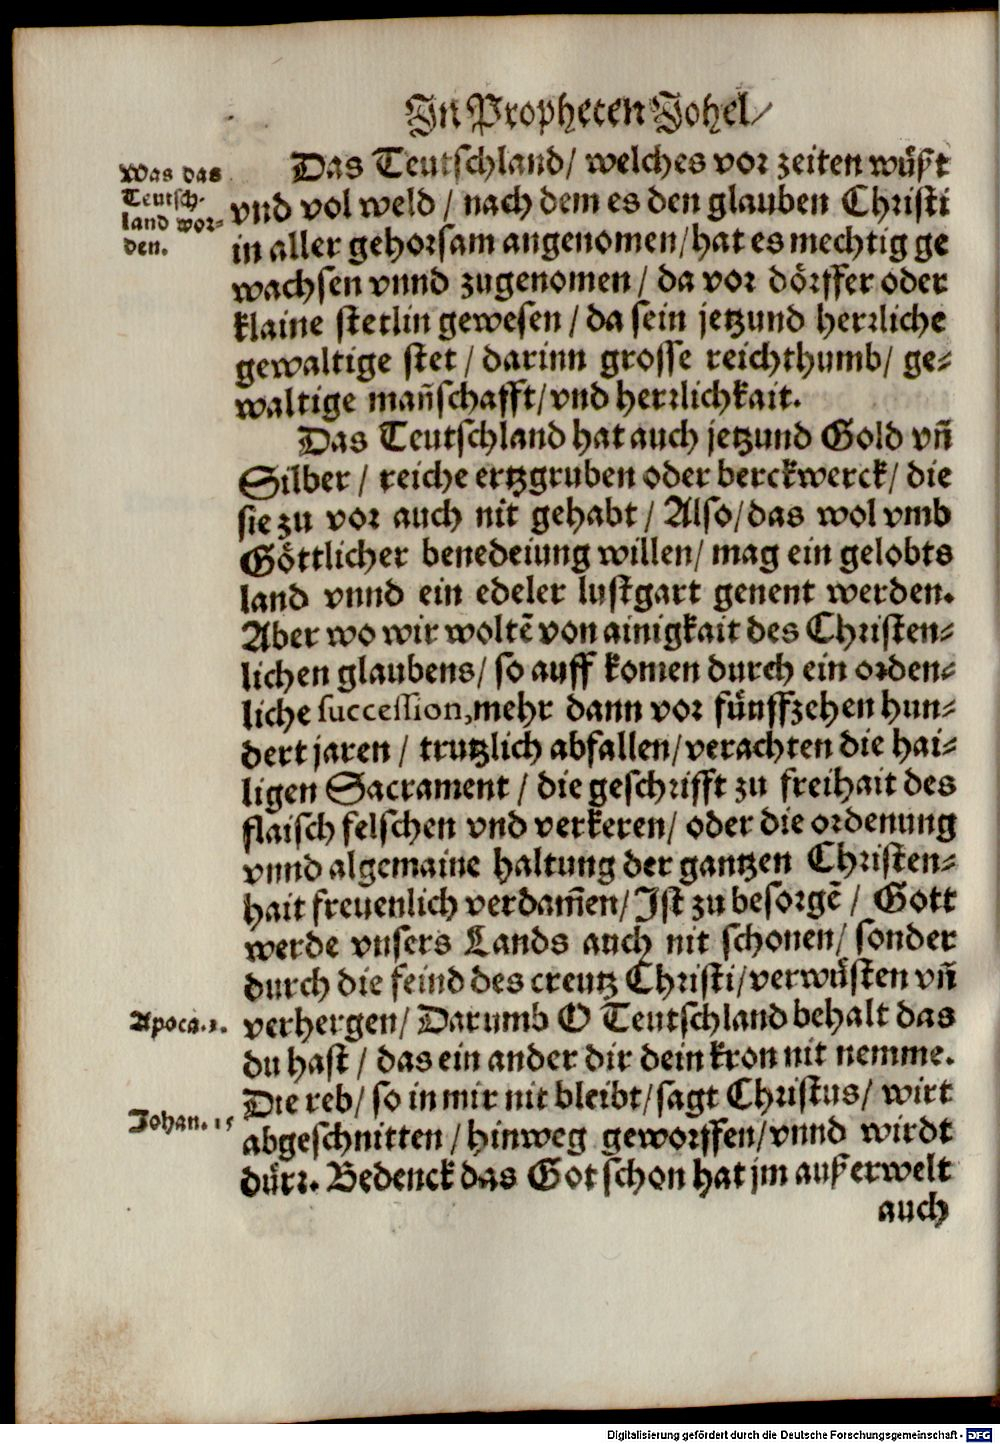 In Propheten Johel/
Was das
Teutsch-
land wor-
den.
Das Teutschland/ welches vor zeiten wuͤst
vnd vol weld / nach dem es den glauben Christi
in aller gehorsam angenomen/hat es mechtig ge
wachsen vnnd zugenomen / da vor doͤrffer oder
klaine stetlin gewesen / da sein jetzund herꝛliche
gewaltige stet / darinn grosse reichthumb/ ge-
waltige mañschafft/vnd herꝛlichkait.
Das Teutschland hat auch jetzund Gold vñ
Silber / reiche ertzgruben oder berckwerck/ die
sie zu vor auch nit gehabt / Also/das wol vmb
Goͤttlicher benedeiung willen/ mag ein gelobts
land vnnd ein edeler lustgart genent werden.
Aber wo wir woltē von ainigkait des Christen-
lichen glaubens/ so auff komen durch ein orden-
liche succession, mehr dann vor fuͤnffzehen hun-
dert jaren / trutzlich abfallen/verachten die hai-
ligen Sacrament / die geschrifft zu freihait des
flaisch felschen vnd verkeren/ oder die ordenung
vnnd algemaine haltung der gantzen Christen-
hait freuenlich verdam̄en/ Ist zu besorgē / Gott
werde vnsers Lands auch nit schonen/ sonder
durch die feind des creutz Christi/verwuͤsten vñ
Apoca.3.
verhergen/ Darumb O Teutschland behalt das
du hast / das ein ander dir dein kron nit nemme.
Die reb/ so in mir nit bleibt/sagt Christus/ wirt
Johan. 15
abgeschnitten / hinweg geworffen/vnnd wirdt
duͤrꝛ. Bedenck das Got schon hat jm außerwelt
auch
Digitalisierung gefördert durch die Deutsche Forschungsgemeinschaft - DFG